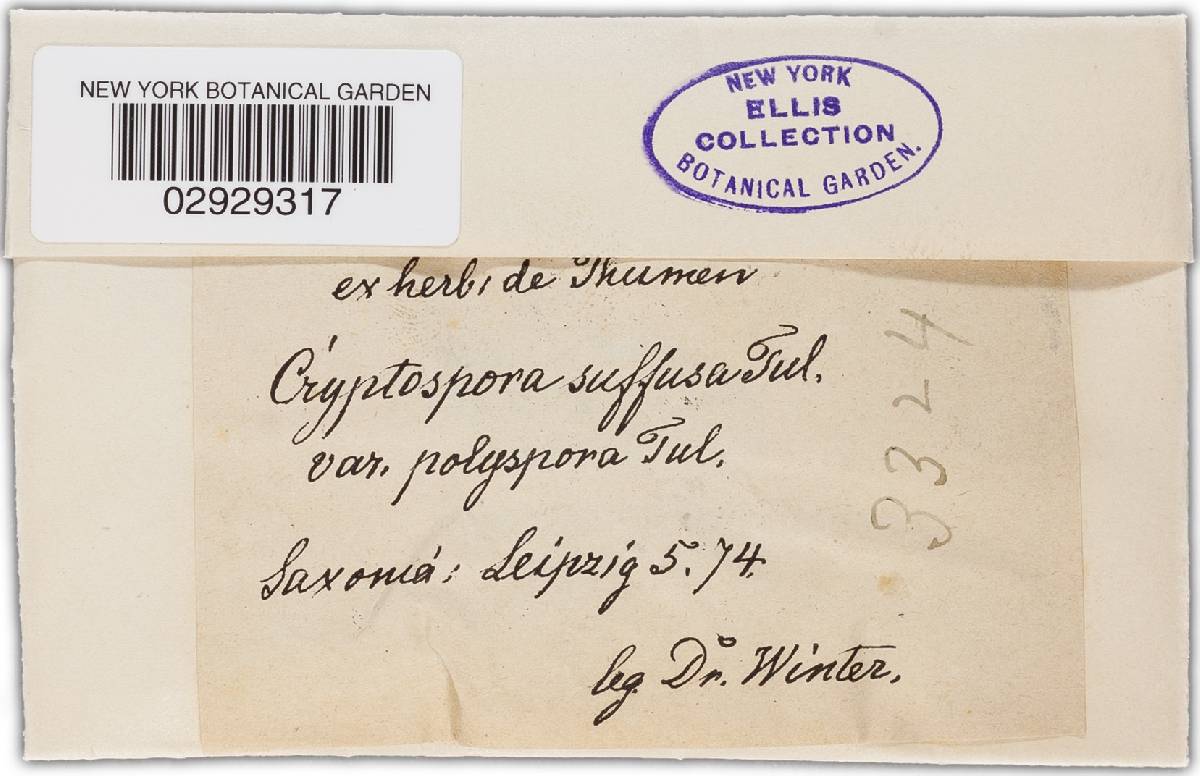 NEW YORK BOTANICAL GARDEN
02929317
NEW YORK
ELLIS
COLLECTION
BOTANICAL GARDEN.
ex herb: de Thumen
Cryptospora suffusa Tul.
var. polyspora Tul.
Saxonia: Leipzig 5.74.
leg. Dr. Winter.
3324